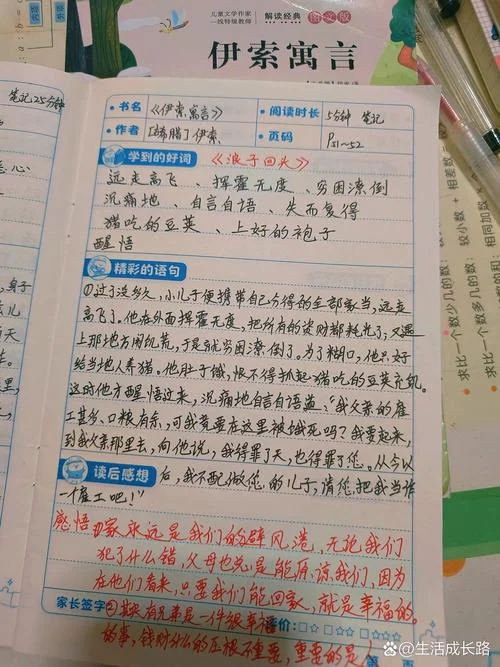 儿童文学作家
一线特级教师
解读经典
图文版
伊索寓言
笔记25分钟
书名
《伊索寓言》
阅读时长
5分钟 笔记
作者
[希腊]伊索
页码
P51~52
学到的好词
《浪子回头》
远走高飞、挥霍无度、穷困潦倒
沉痛地、自言自语、失而复得
猪吃的豆荚、上好的袍子
醒悟
精彩的语句
①过了没多久,小儿子便携带自己分得的全部家当,远走
高飞了。他在外面挥霍无度,把所有的资财都耗光了,又遇
上那地方闹饥荒,于是就穷困潦倒了。为了糊口,他只好
给当地人养猪。他肚子饿,恨不得抓起猪吃的豆荚充饥。
这时他方醒悟过来,沉痛地自言自语道:“我父亲的雇
工甚多,口粮有余,可我竟要在这里被饿死吗?我要起来,
到我父亲那里去,向他说,我得罪了天,也得罪了您。从今以
读后感想
后,我不配做您的儿子,请您把我当作
一个雇工吧!”
感悟①家永远是我们的避风港,无论我们
犯了什么错,父母也总是能原谅我们,因为
在他们看来,只要我们能回家,就是幸福的。
家长签字
②其实有兄弟是一件很幸福
价:
的事,钱财什么的压根不重要 重要的是人
求比一个数多几的数:
较小数+相差数=
求比一个数少几的数:
求几个相同加数
头条 @生活成长路